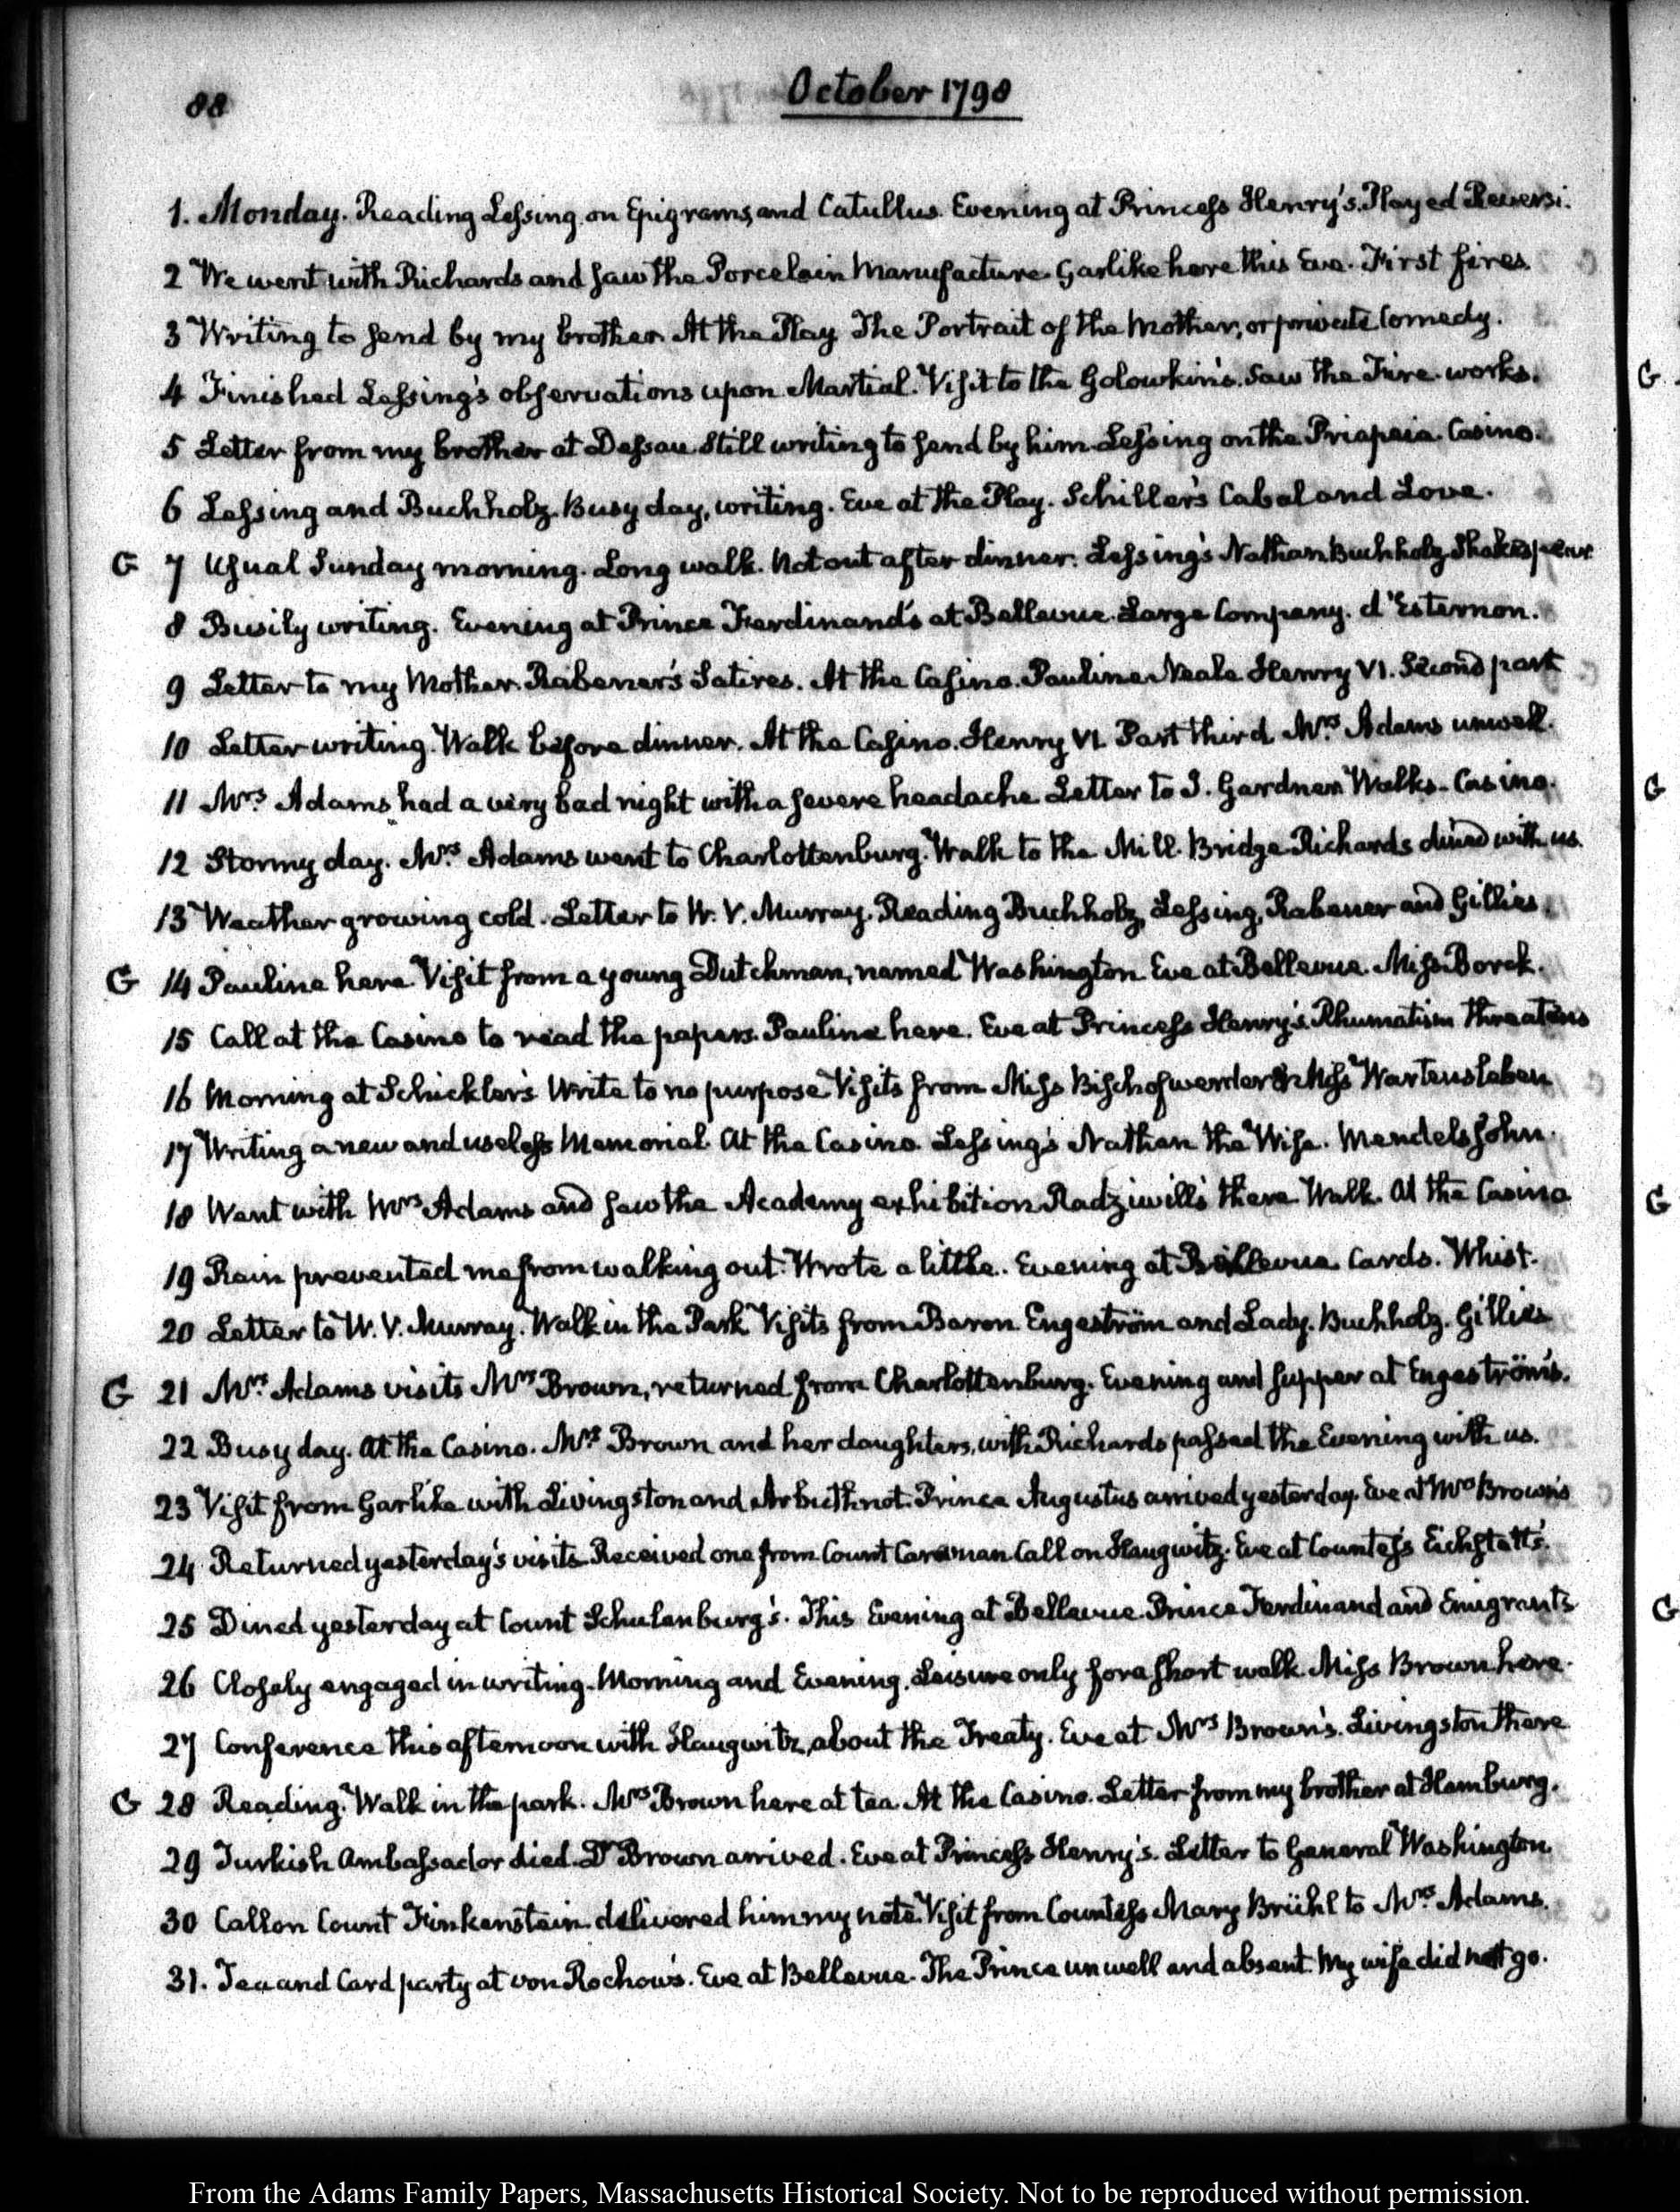 88
October 1798
1. Monday. Reading Lessing on Epigrams, and Catullus. Evening at Princess Henry's. Played Reversi.
2 We went with Richards and saw the Porcelain Manufacture. Garlike here this Eve. First fires.
3 Writing to send by my brother. At the Play. The Portrait of the Mother, or private Comedy.
4 Finished Lessing's observations upon Martial. Visit to the Golowkin's. Saw the Fire-works.
5 Letter from my brother at Dessau. Still writing to send by him. Lessing on the Priapeia. Casino.
6 Lessing and Buchholz. Busy day, writing. Eve at the Play. Schiller's Cabal and Love.
G 7 Usual Sunday morning. Long walk. Not out after dinner. Lessing's Nathan. Buchholz. Shakespear
8 Busily writing. Evening at Prince Ferdinand's at Bellevue. Large Company. d'Esternon.
9 Letter to my Mother. Rabener's Satires. At the Casino. Pauline Neale. Henry VI. Second part
10 Letter writing. Walk before dinner. At the Casino. Henry VI. Part third. Mrs Adams unwell.
11 Mrs Adams had a very bad night with a severe headache. Letter to J. Gardner. Walks. Casino.
12 Stormy day. Mrs Adams went to Charlottenburg. Walk to the Mill Bridge. Richards dined with us.
13 Weather growing cold. Letter to W. V. Murray. Reading Buchholz, Lessing, Rabener and Gillies.
G 14 Pauline here. Visit from a young Dutchman, named Washington. Eve at Bellevue. Miss Borck.
15 Call at the Casino to read the papers. Pauline here. Eve at Princess Henry's. Rhumatism threatens
16 Morning at Schickler's. Write to no purpose. Visits from Miss Bischofwerder & Miss Wartensleben
17 Writing a new and useless Memorial. At the Casino. Lessing's Nathan the Wise. Mendelssohn.
18 Went with Mrs Adams and saw the Academy exhibition. Radziwill's there. Walk. At the Casino
19 Rain prevented me from walking out. Wrote a little. Evening at Bellevue. Cards. Whist.
20 Letter to W. V. Murray. Walk in the Park. Visits from Baron Engeström and Lady. Buchholz. Gillies
G 21 Mrs Adams visits Mrs Brown, returned from Charlottenburg. Evening and supper at Engeström's.
22 Busy day. At the Casino. Mrs Brown and her daughters, with Richards passed the Evening with us.
23 Visit from Garlike with Livingston and Arbuthnot. Prince Augustus arrived yesterday. Eve at Mrs Brown's
24 Returned yesterday's visits. Received one from Count Caraman. Call on Haugwitz. Eve at Countess Eichstatt's.
25 Dined yesterday at Count Schulenburg's. This Evening at Bellevue. Prince Ferdinand and Emigrants
26 Closely engaged in writing. Morning and Evening. Leisure only for a short walk. Miss Brown here.
27 Conference this afternoon with Haugwitz, about the Treaty. Eve at Mrs Brown's. Livingston there
G 28 Reading. Walk in the park. Mrs Brown here at tea. At the Casino. Letter from my brother at Hamburg.
29 Turkish Ambassador died. Dr Brown arrived. Eve at Princess Henry's. Letter to General Washington.
30 Call on Count Finkenstein. delivered him my note. Visit from Countess Mary Brühl to Mrs Adams.
31. Tea and Card party at von Rochow's. Eve at Bellevue. The Prince unwell and absent. My wife did not go.
G
G
G
G
From the Adams Family Papers, Massachusetts Historical Society. Not to be reproduced without permission.